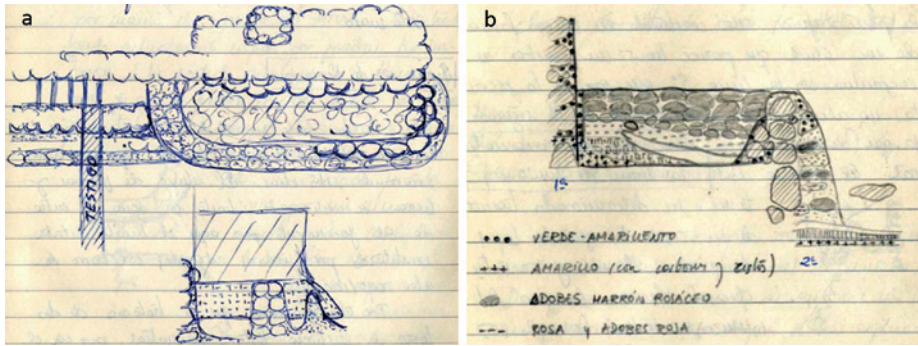 a
TESTIGO
b
1º
2º
VERDE-AMARILLENTO
AMARILLO (con carbones y restos)
ADOBES MARRÓN ROSÁCEO
ROSA Y ADOBES ROJA